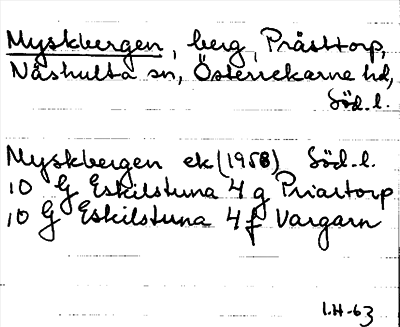 Myskbergen, berg, Pråsttorp,
Näshulta sn, Österrekarne hd,
Söd. l.
Myskbergen ek (1958) Söd. l.
10 G Eskilstuna 4 g Priortorp
10 G Eskilstuna 4 f Vargarn
I.H-63